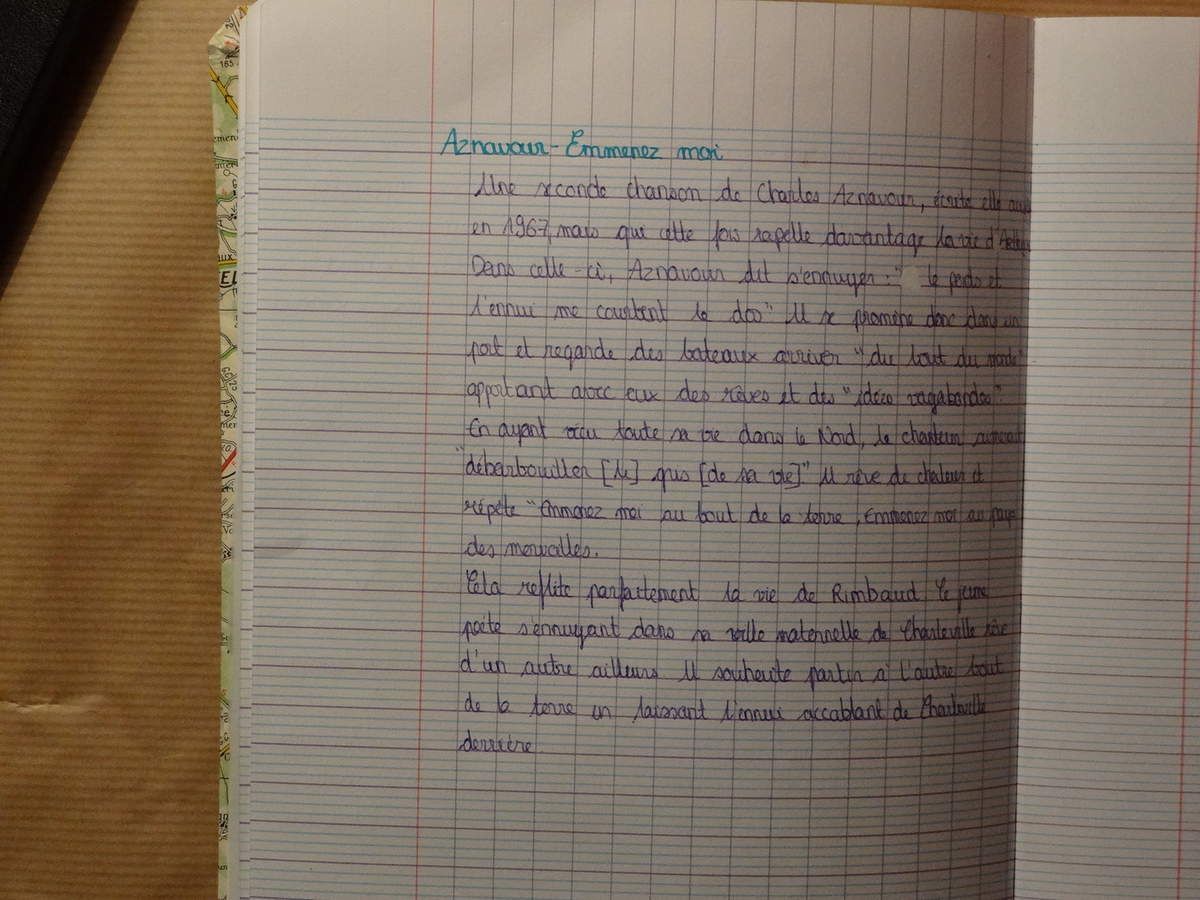 Aznavour - Emmenez moi
Une seconde chanson de Charles Aznavour, écrite elle aussi
en 1967, mais qui cette fois rapelle davantage la vie d'
Dans celle-ci, Aznavour dit s'ennuyer : " le poids et
l'ennui me courbent le dos" Il se promène donc dans un
port et regarde des bateaux arriver "du bout du monde"
apportant avec eux des rêves et des "idées vagabondes".
En ayant vécu toute sa vie dans le Nord, le chanteur aimerait
"débarbouiller [le] gris [de sa vie]" Il rêve de chaleur et
répète "Emmenez moi au bout de la terre, Emmenez moi au pays
des merveilles.
Cela reflète parfaitement la vie de Rimbaud. Le jeune
poète s'ennuyant dans sa ville maternelle de Charleville rêve
d'un autre ailleurs Il souhaite partir à l'autre bout
de la terre en laissant l'ennui accablant de Charleville
derrière
165
EL